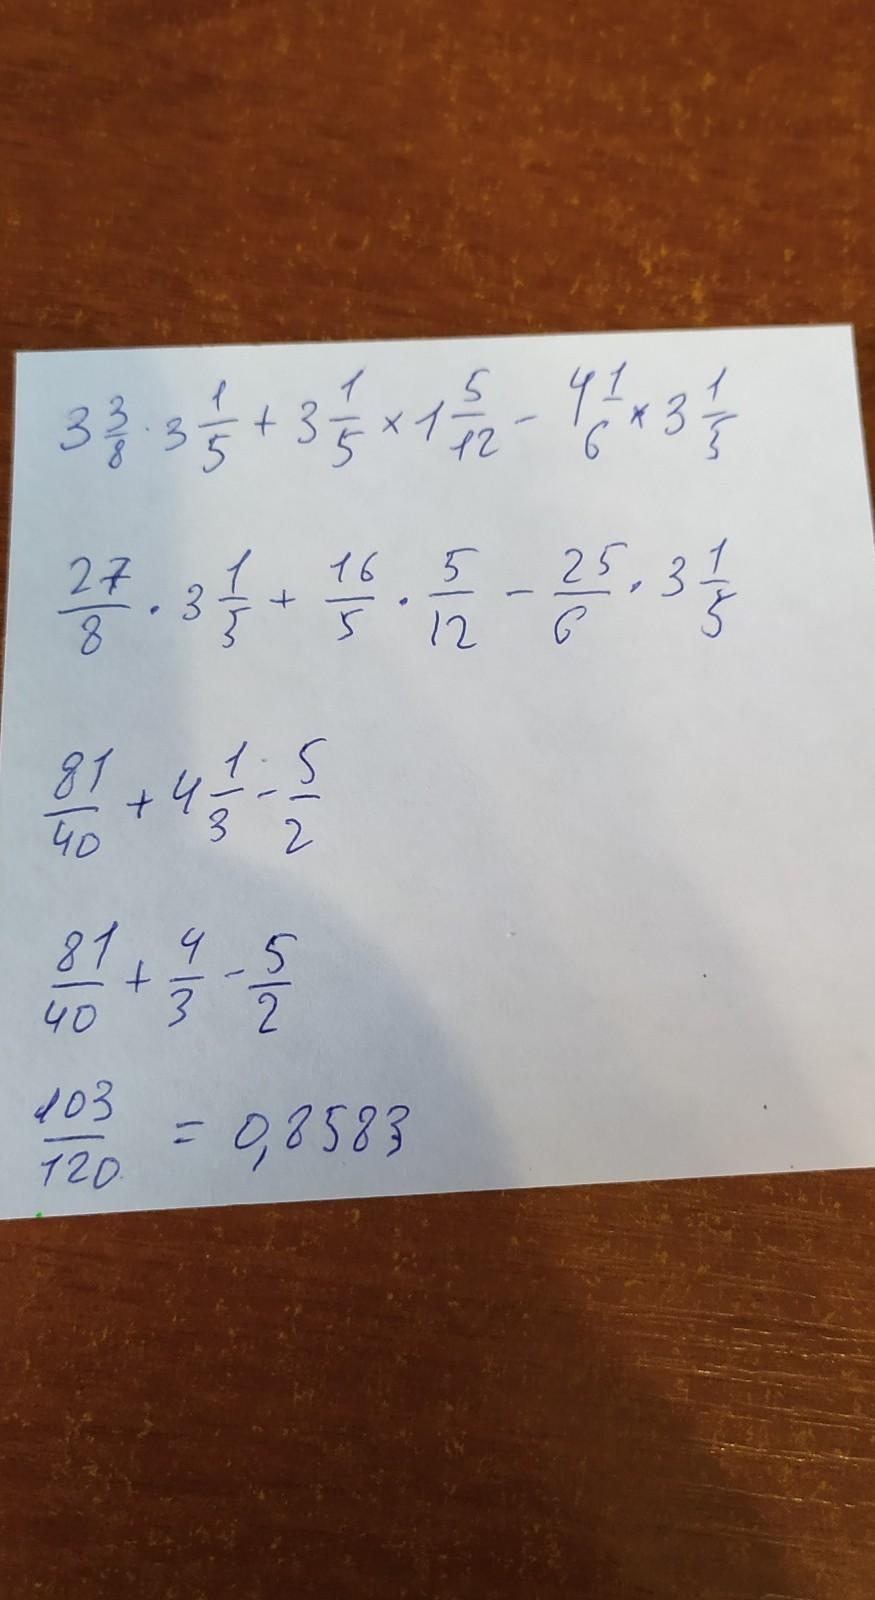 3 3/8 · 3 1/5 + 3 1/5 × 1 5/12 - 4 1/6 × 3 1/5
27/8 · 3 1/5 + 16/5 · 5/12 - 25/6 · 3 1/5
81/40 + 4 1/3 - 5/2
81/40 + 4/3 - 5/2
103/120 = 0,8583